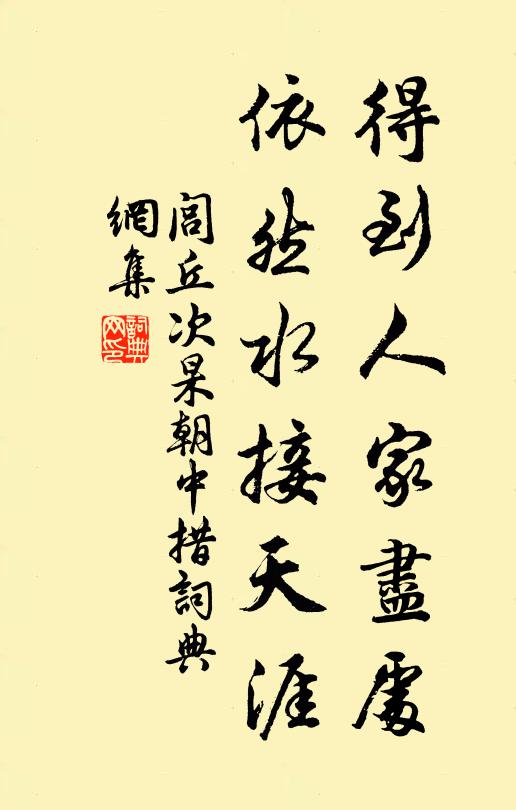 得到人家盡處
依然水接天涯
閭丘次杲朝中措詞典
網集
詞典
网印